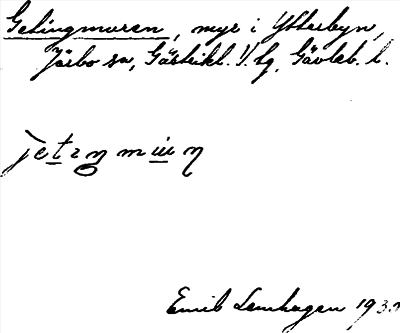 Getingmuren, myr i Ytterbyn,
Järbo sn, Gästrikl. V. tg, Gävleb. l.
Emil Lenhagen 193